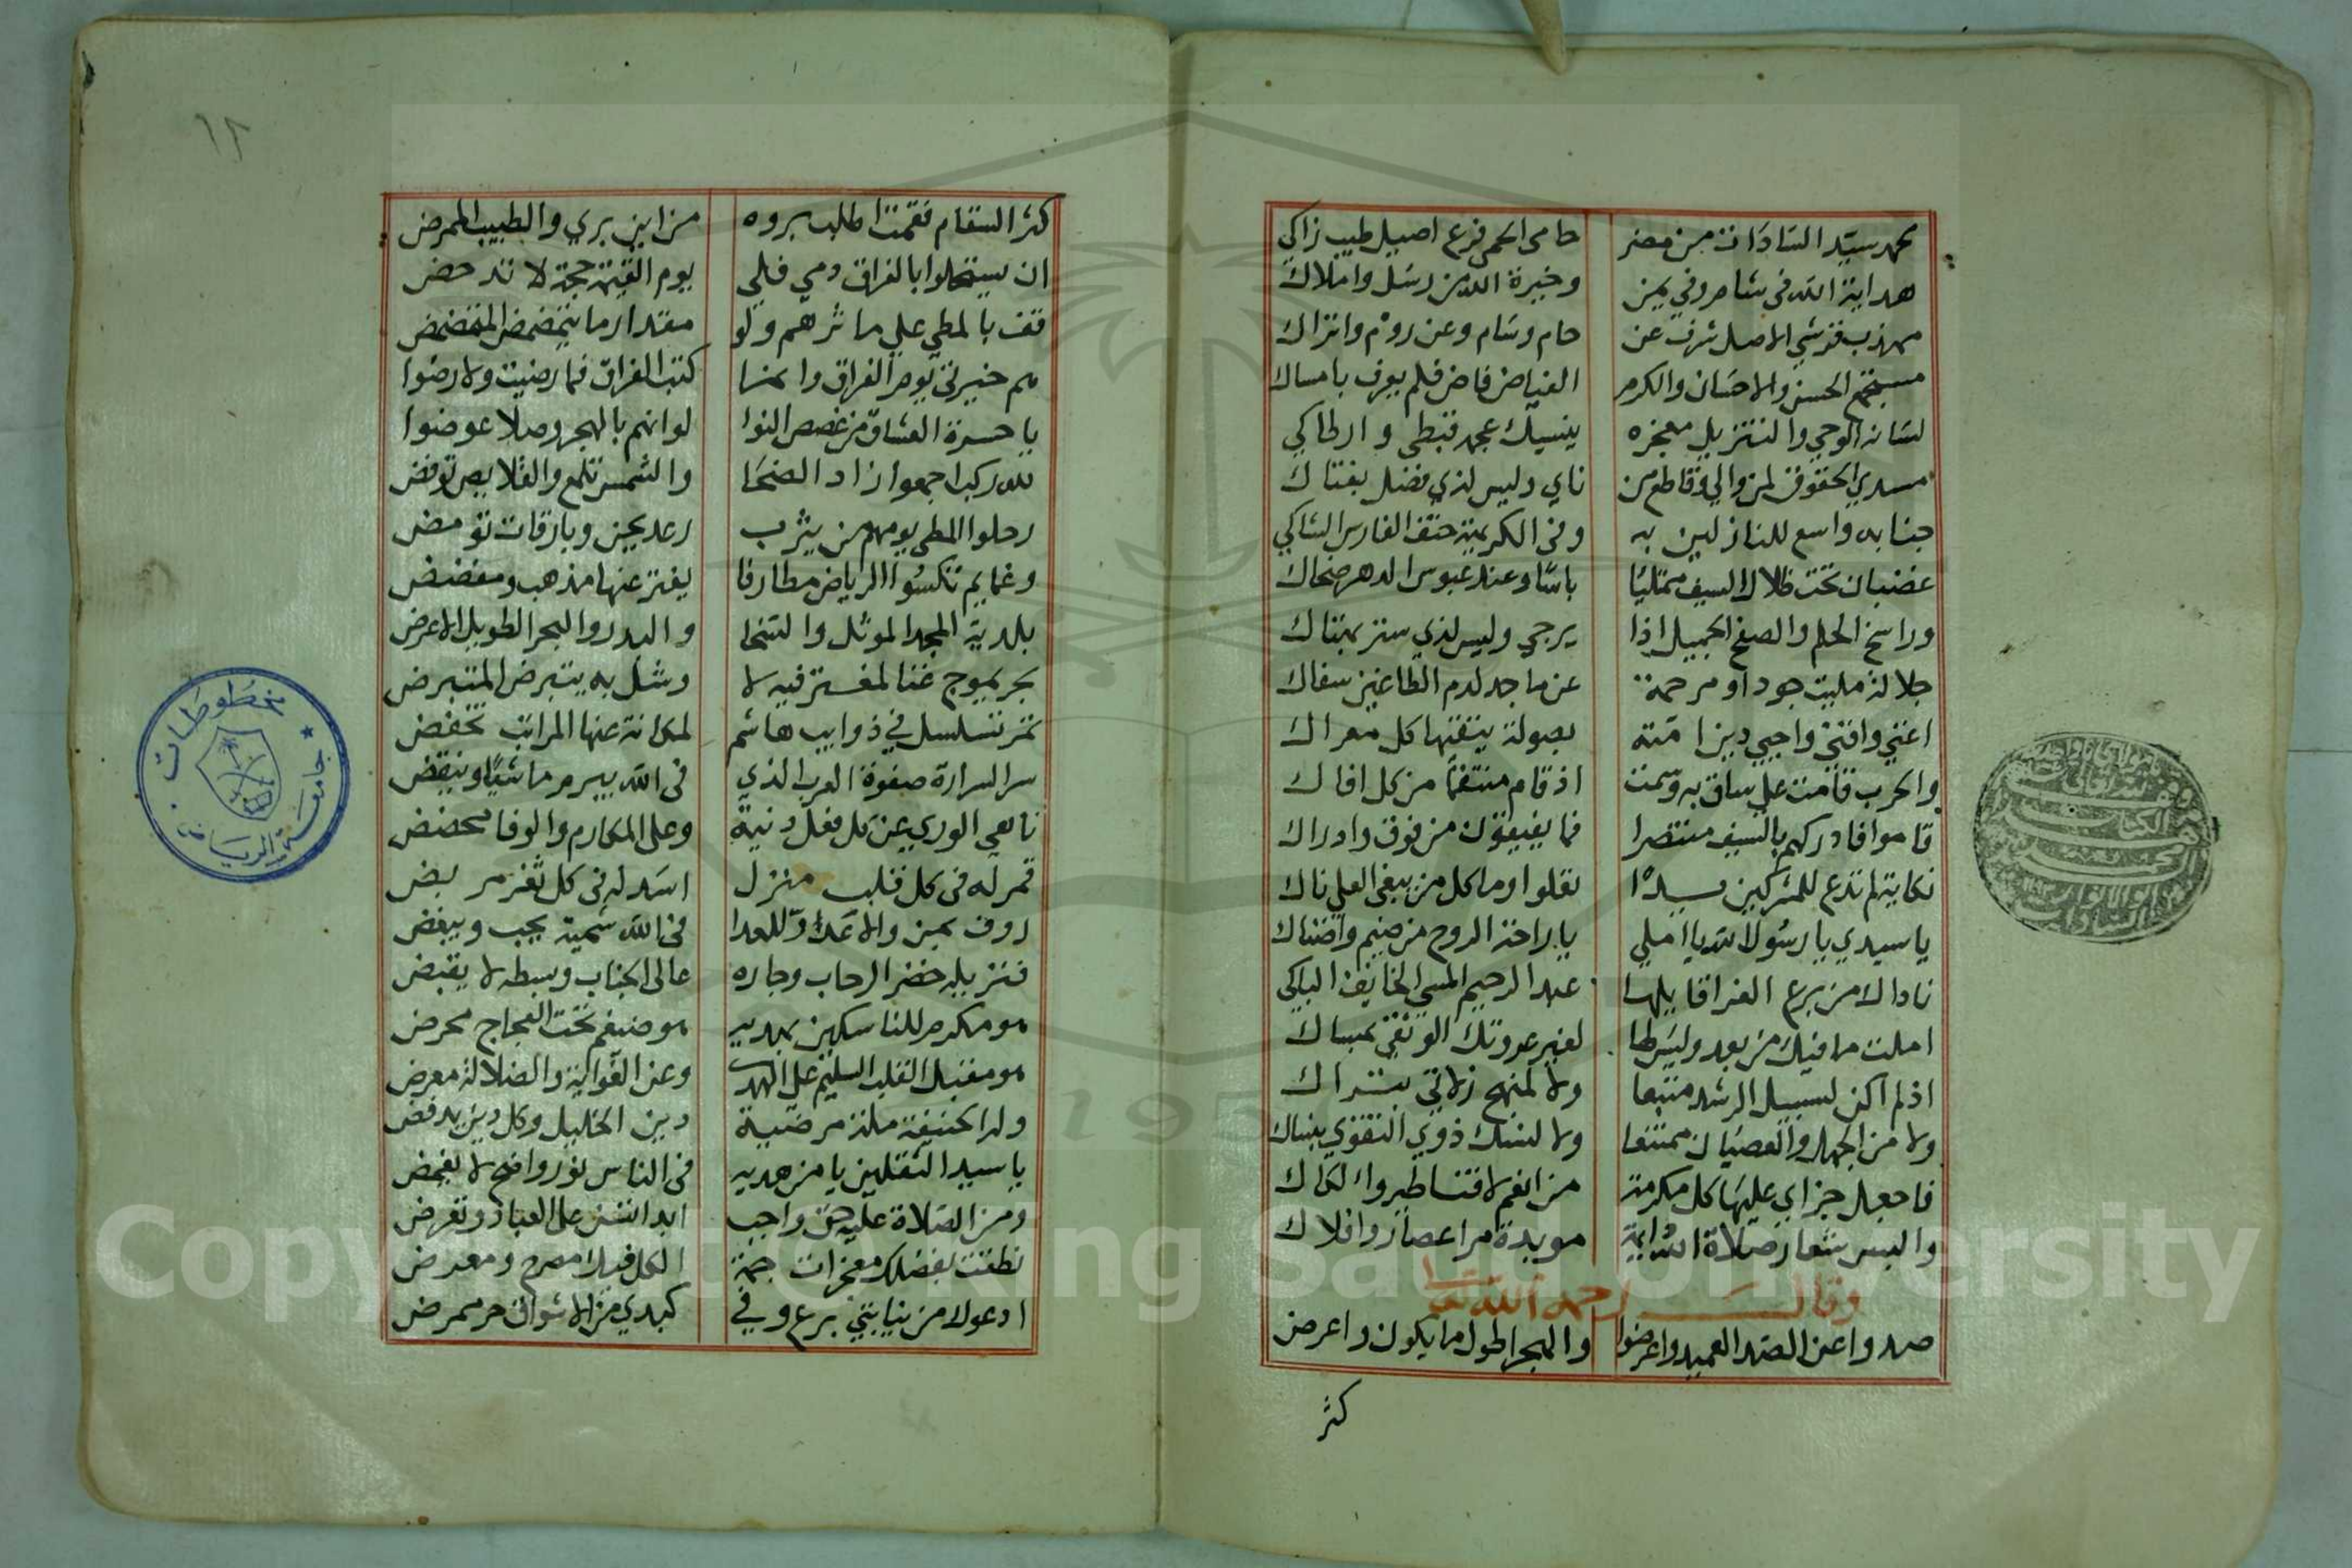 محمد سيد السادات من مضر حامى الحمى فرع اصيل طيب زاكي
هداية الله فى شام وفي يمن وخيرة الله من رسل واملاك
مهذب قرشي الاصل شرف عن حام وسام وعن روم واتراك
الحسن والاحسان والكرم الفياض فاض فلم يعرف بامساك
لسانه الوحي والتنزيل معجزه ينسيك عجمه قبطى و
مسدي الحقوق لمن والي وقاطع من ناي وليس لذي فضل بفتاك
جنابه واسع للنازلين به وفى الكريهة حتف الفارس الشاكي
غضبان تحت ظلال السيف ممتليا باسًا وعند عبوس الدهر ضحاك
وراسخ الحلم والصفح الجميل اذا يرجي وليس لذي ستر بهتاك
جلالة مليت جودا ومرحمة عن ماجد لدم الطاغين سفاك
واحيي دين امته بصولة كل معراك
والحرب قامت علي ساق به وسمت اذ قام منتقمًا من كل افاك
قاموا فادركهم بالسيف منتصرا فما يفيقون من فوق وادراك
نكاية لم تدع للمشركين يدًا وما كل من يبغي العلي ناك
يا سيدي يا رسول الله يا املي يا راحة الروح من ضيم واضناك
من برع الغرا قايلها عبد الرحيم المسي الخايف الباكي
املت ما فيك من بعد وليس لها لغير عروتك الوثقي بمساك
اذ لم اكن لسبيل الرشد متبعا ولا لمنهج زلاتي بتراك
ولا من الجهل والعصيان ممتنعا ولا لنسك ذوي التقوي بنساك
فاجعل جزاي عليها كل مكرمة من انعم
والبس شعار صلاة الله موبدة مر اعصار وافلاك
وقال رحمه الله تعالى
صدوا عن الصب العميد واعرضوا والهجر اطول ما يكون واعرض
كثر
١٢
كثر السقام فقمت اطلب بروه من اين بري والطبيب الممرض
ان يستحلوا بالفراق دمي فلي يوم القيمة حجة لا تدحض
قف بالمطي علي ماثرهم ولو مقدار ما يتمضمض المتمضمض
هم خيرتي يوم الفراق وانما كتب الفراق فما رضيت ولا رضوا
يا حسرة العشاق من غصص النوا لو انهم بالهجر وصلا عوضوا
لله ركب اجمعوا زاد الضحا والشمس تلمع والقلايص توفض
رحلوا المطي يومهم من يثرب رعد يحن وبارقات تومض
وغمايم تكسوا الرياض مطارفا يفتر عنها مذهب ومفضض
بلدية المجد الموثل والسخا والبدر والبحر الطويل الاعرض
بحر يموج غنا لمغترف
قمر تسلسل في ذوايب هاشم لمكانة عنها المراتب تخفض
سر السرارة صفوة العرب الذي فى الله يبرم ما يشاء وينقض
ناهي الوري عن كل فعل دنية وعلي المكارم والوفا محضض
قمر له فى كل قلب منزل اسد له فى كل ثغر مربض
فى الله شيمته يحب ويبغض
فنزيله خضر الرحاب وجاره عالى الجناب وبسطه لا يقبض
هو مكرم للناسكين بهديه هو ضيغم تحت العجاج محرض
هو مقبل القلب السليم علي الهدي وعن الغواية والضلالة معرض
وله الحنيفة ملة مرضية دين الخليل وكل دين يرفض
يا سيد الثقلين يا من هديه فى الناس نور واضح لا يغمض
ومن الصلاة عليه حق واجب ابدا تسن علي العباد وتفرض
نطقت بفضلك معجزات جمة الكل فيك مصرح ومعرض
ادعوك من نيابتي برع وفي كبدي من الاشواق حر ممرض
مخطوطات
جامعة الرياض
Copyright © King Saud University
195